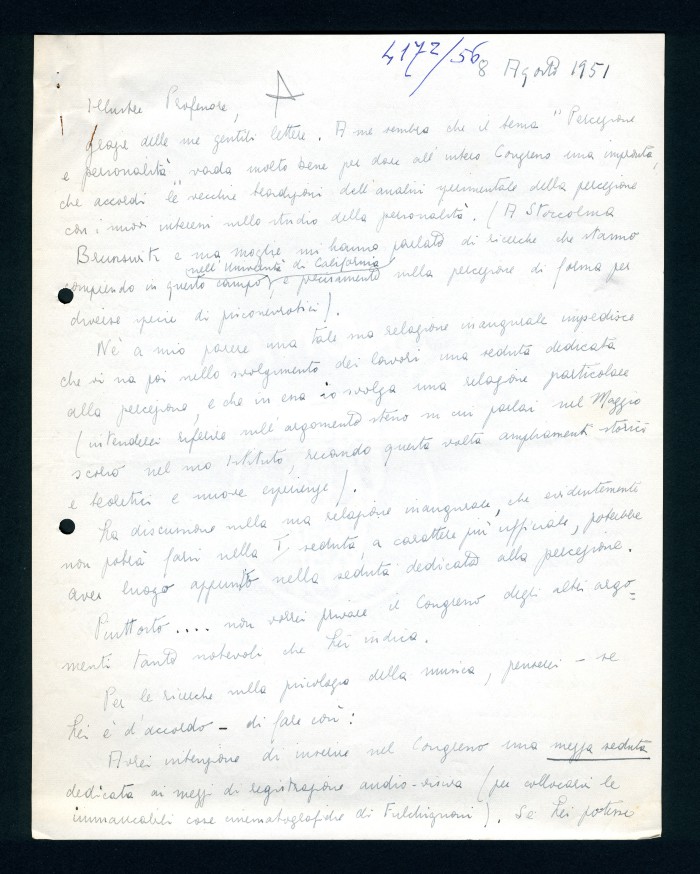 4172/56
8 Agosto 1951
A
Illustre Professore,
grazie delle sue gentili lettere. A me sembra che il tema "Percezione
e personalità" vada molto bene per dare all'intero Congresso una impronta,
che accordi le vecchie tradizioni dell'analisi sperimentale della percezione
con i nuovi interessi nello studio della personalità. (A Stoccolma
Brunswik e sua moglie mi hanno parlato di ricerche che stanno
nell'Università di California
compiendo in questo campo, e precisamente sulla percezione di forma per
diverse specie di psiconevrotici).
Nè a mio parere una tale sua relazione inaugurale impedisce
che vi sia poi nello svolgimento dei lavori una seduta dedicata
alla percezione, e che in essa io svolga una relazione particolare
(intenderei riferire sull'argomento stesso su cui parlai nel Maggio
scorso nel suo Istituto, recando questa volta ampliamenti storici
e teoretici e nuove esperienze).
La discussione sulla sua relazione inaugurale, che evidentemente
non potrà farsi nella I seduta, a carattere più ufficiale, potrebbe
aver luogo appunto nella seduta dedicata alla percezione.
Piuttosto .... non vorrei privare il Congresso degli altri argo=
menti tanto notevoli che Lei indica.
Per le ricerche sulla psicologia della musica, penserei - se
Lei è d'accordo - di fare così:
Avrei intenzione di inserire nel Congresso una mezza seduta
dedicata ai mezzi di registrazione audio-visiva (per collocarvi le
immancabili cose cinematografiche di Fulchignoni). Se Lei potesse